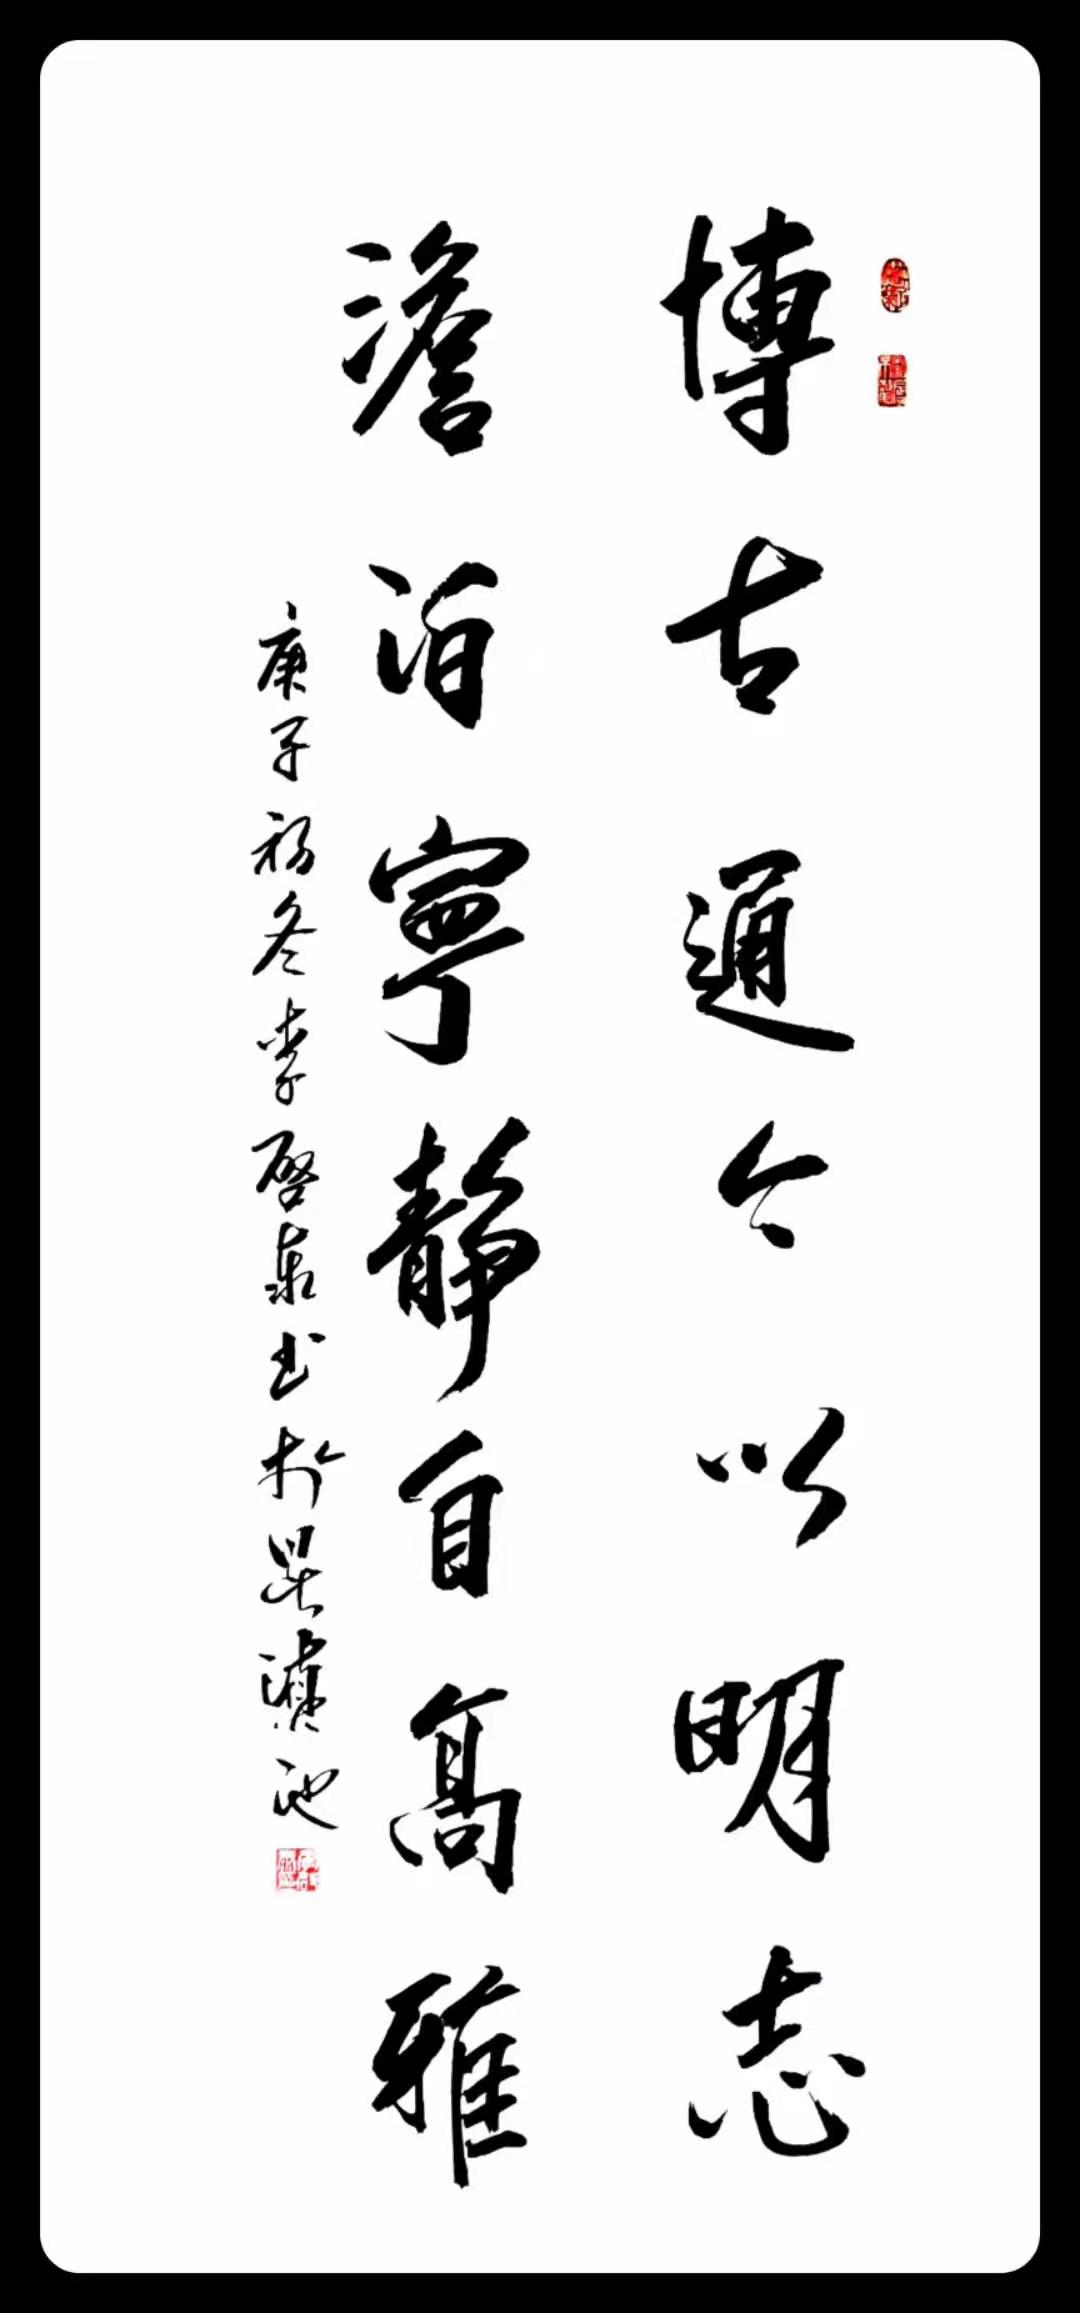 博古通今以明志
澹泊寧靜自高雅
庚子初冬李啓東书於昆滇池